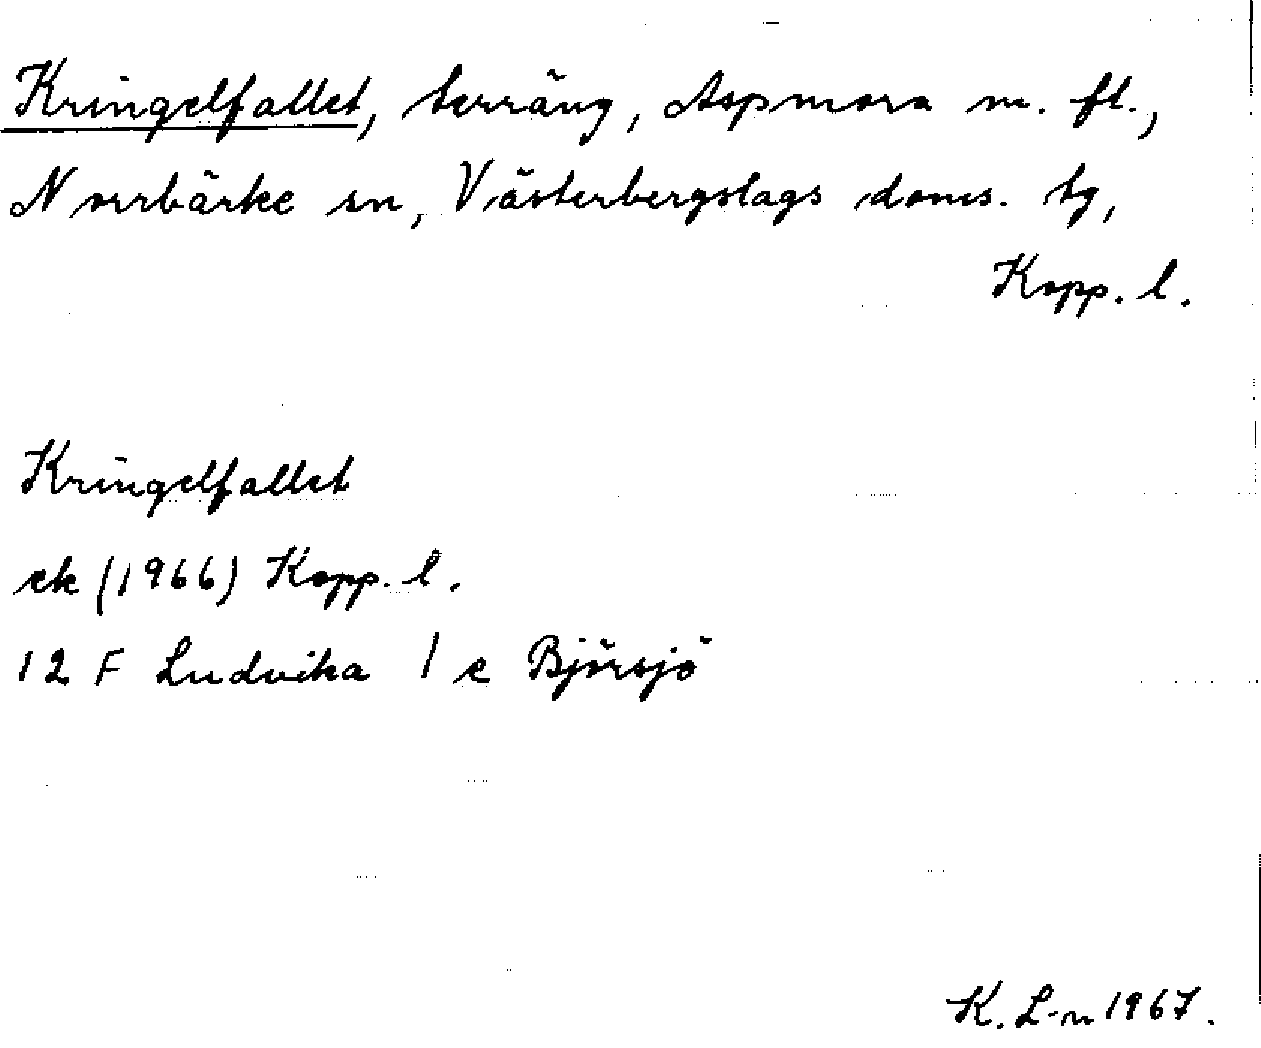 Kringelfallet, terräng, Aspmora m. fl.,
Norrbärke sn, Västerbergslags doms. tg,
Kopp. l.
Kringelfallet
ek (1966) Kopp. l.
12 F Ludvika 1 e Björsjö
K. L-n 1967.